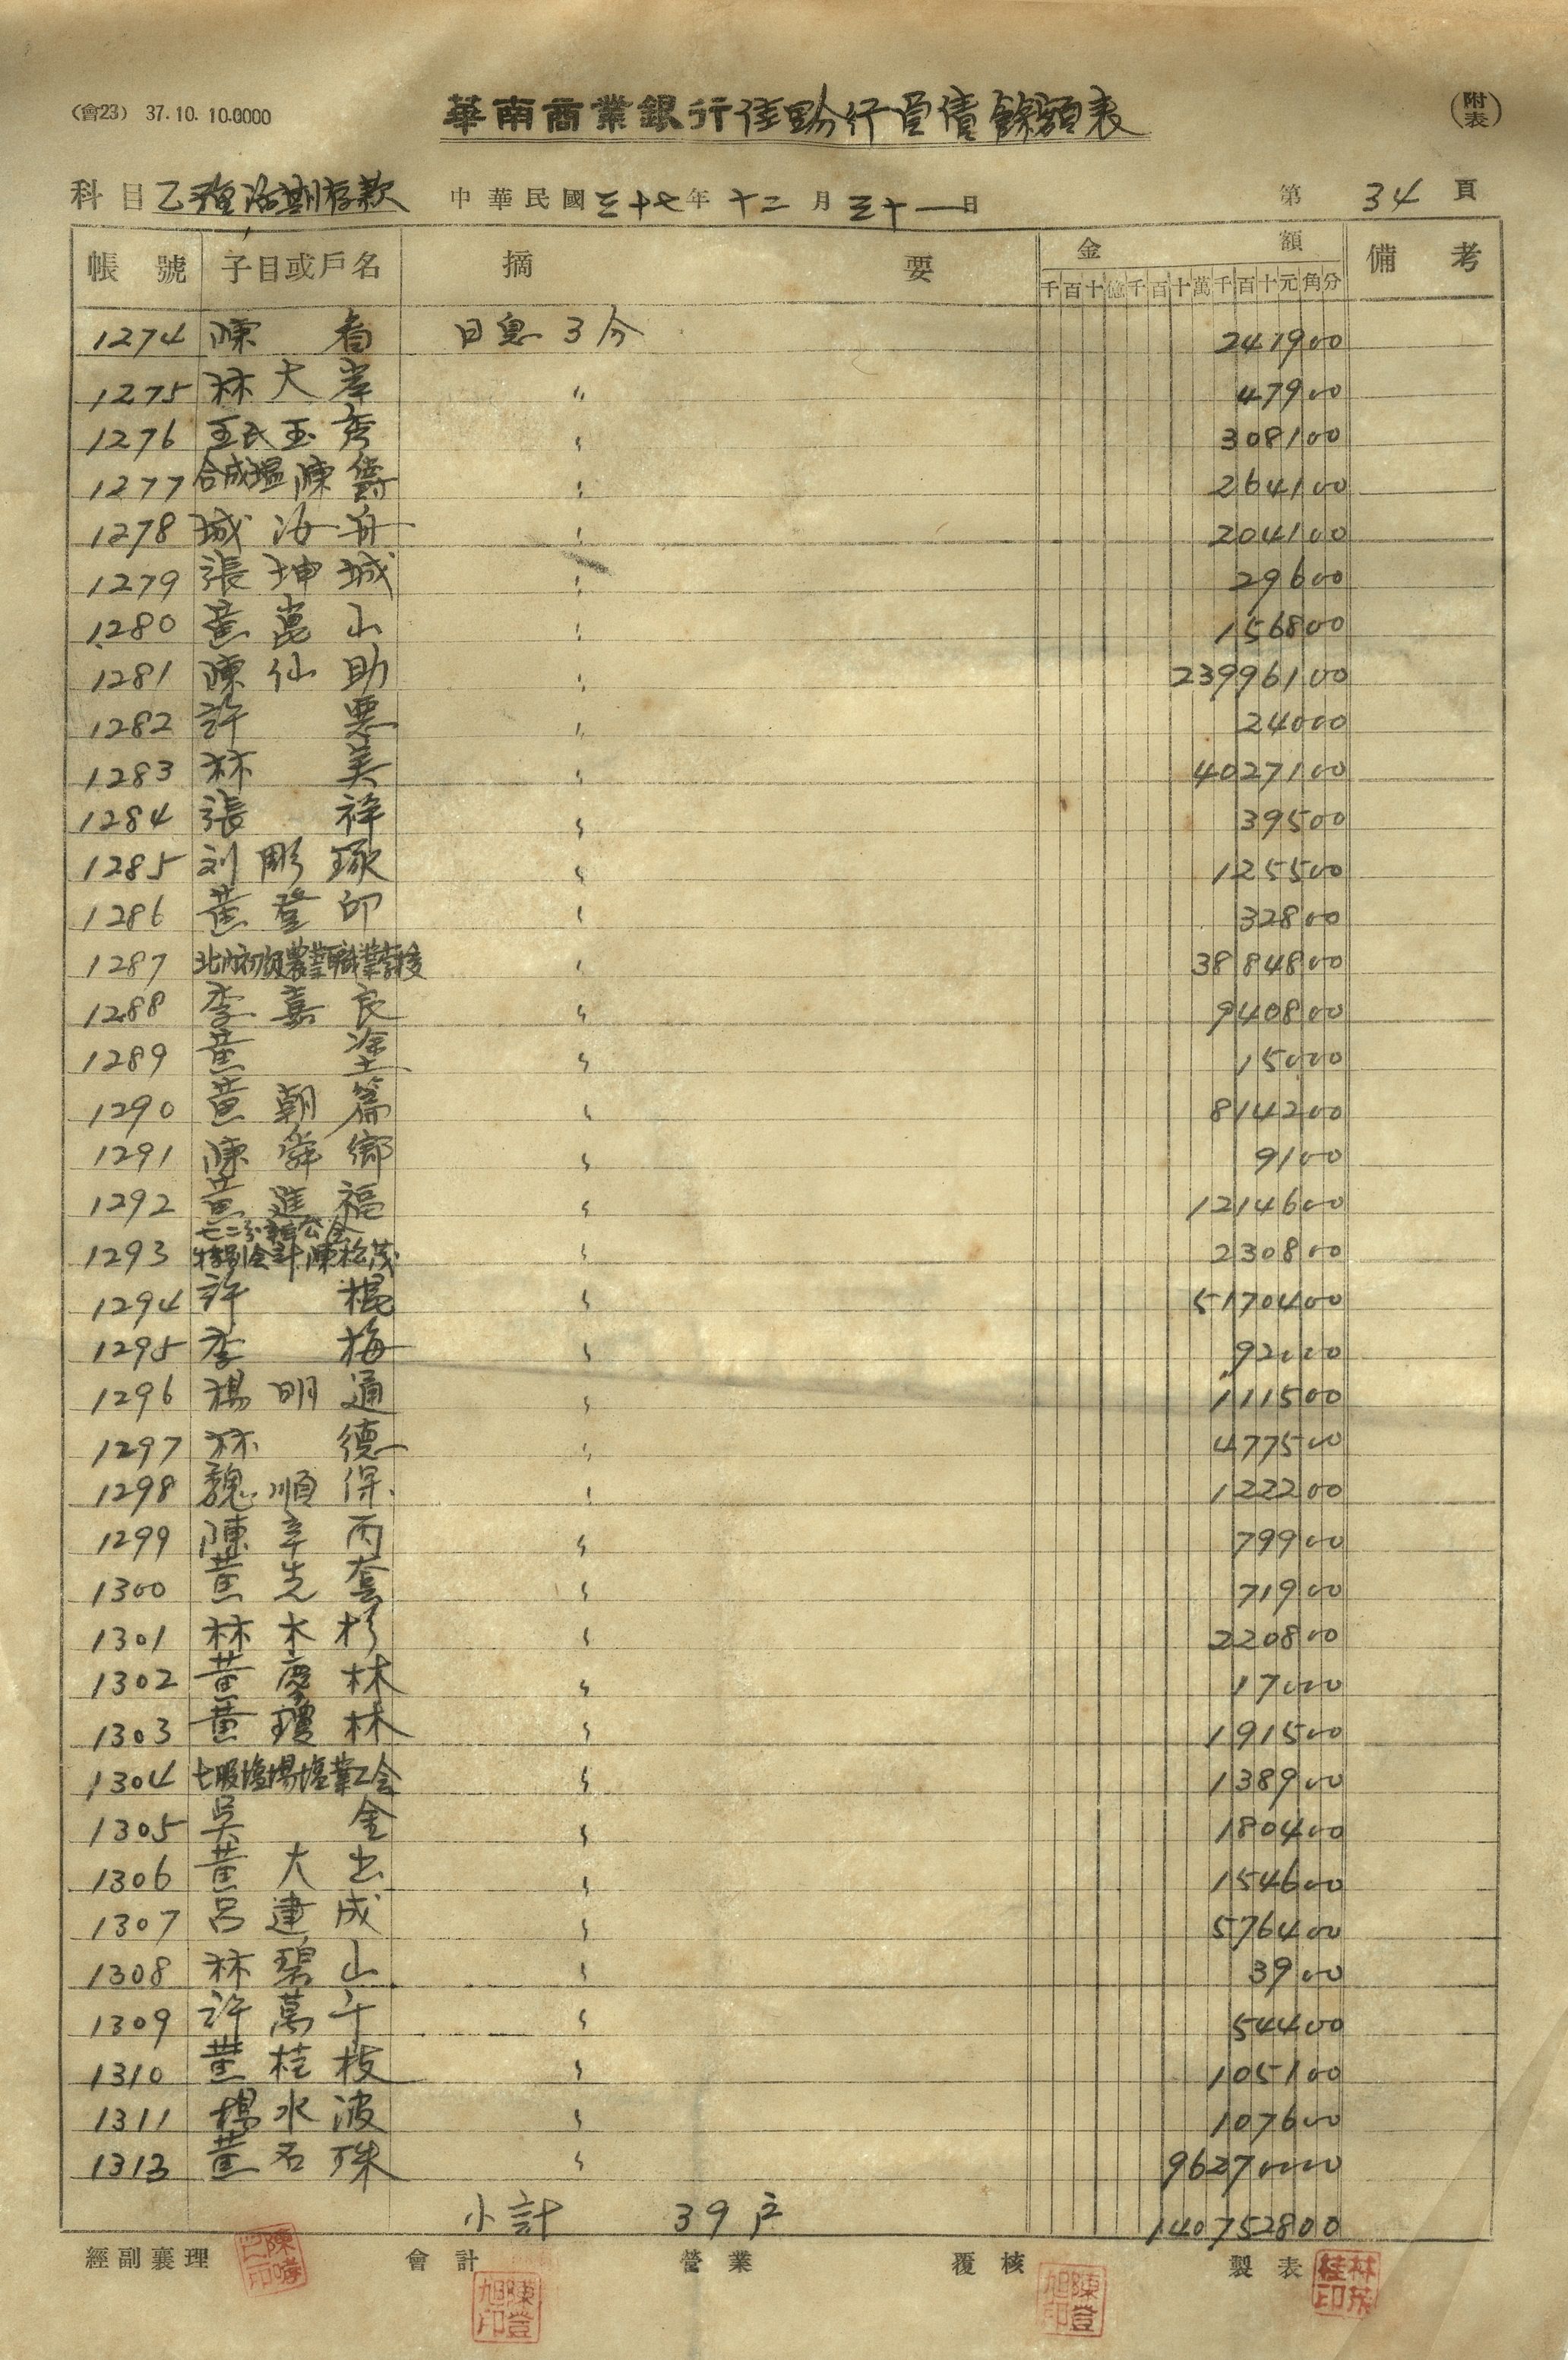 (會23) 37.10.10.0000
華南商業銀行佳里分行資負債餘額表
(附表)
科目乙種活期存款 中華民國三十七年十二月三十一日 第34頁
帳號 子目或戶名 摘要 金額 備考
千百十億千百十萬千百十元角分
1274 陳看 日息3分 247900
1275 林大岸 〃 47900
1276 王氏玉秀 〃 308100
1277 合成塩陳 〃 264100
1278 〃 204100
1279 張坤城 〃 29600
1280 黃萬山 〃 156800
1281 陳仙助 〃 23996100
1282 許悪 〃 24000
1283 林美 〃 4027100
1284 張祥 〃 39500
1285 刘彫琢 〃 125500
1286 黃登印 〃 32800
1287 北門初級農業職業學校 〃 3884800
1288 李嘉良 〃 940800
1289 黃塗 〃 15000
1290 黃朝篇 〃 814200
1291 陳舜鄉 〃 9100
1292 黃進福 〃 1214600
1293 特別会計陳松茂 〃 230800
1294 許棍 〃 5170400
1295 李梅 〃 92000
1296 楊明通 〃 111500
1297 林德 〃 477500
1298 魏順保 〃 122200
1299 陳辛丙 〃 79900
1300 黃先套 〃 71900
1301 林木杉 〃 220800
1302 黃慶林 〃 17000
1303 黃瓊林 〃 191500
1304 七股塩場塩業工会 〃 138900
1305 吳金 〃 180400
1306 黃大出 〃 154600
1307 呂建成 〃 576400
1308 林碧山 〃 3900
1309 許萬千 〃 54400
1310 黃桂枝 〃 105100
1311 楊水波 〃 107600
1313 黃名珠 〃 96270000
小計 39戶 140752800
經副襄理 會計 營業 覆核 製表
陳登旭印
陳登旭印
林茂桂印